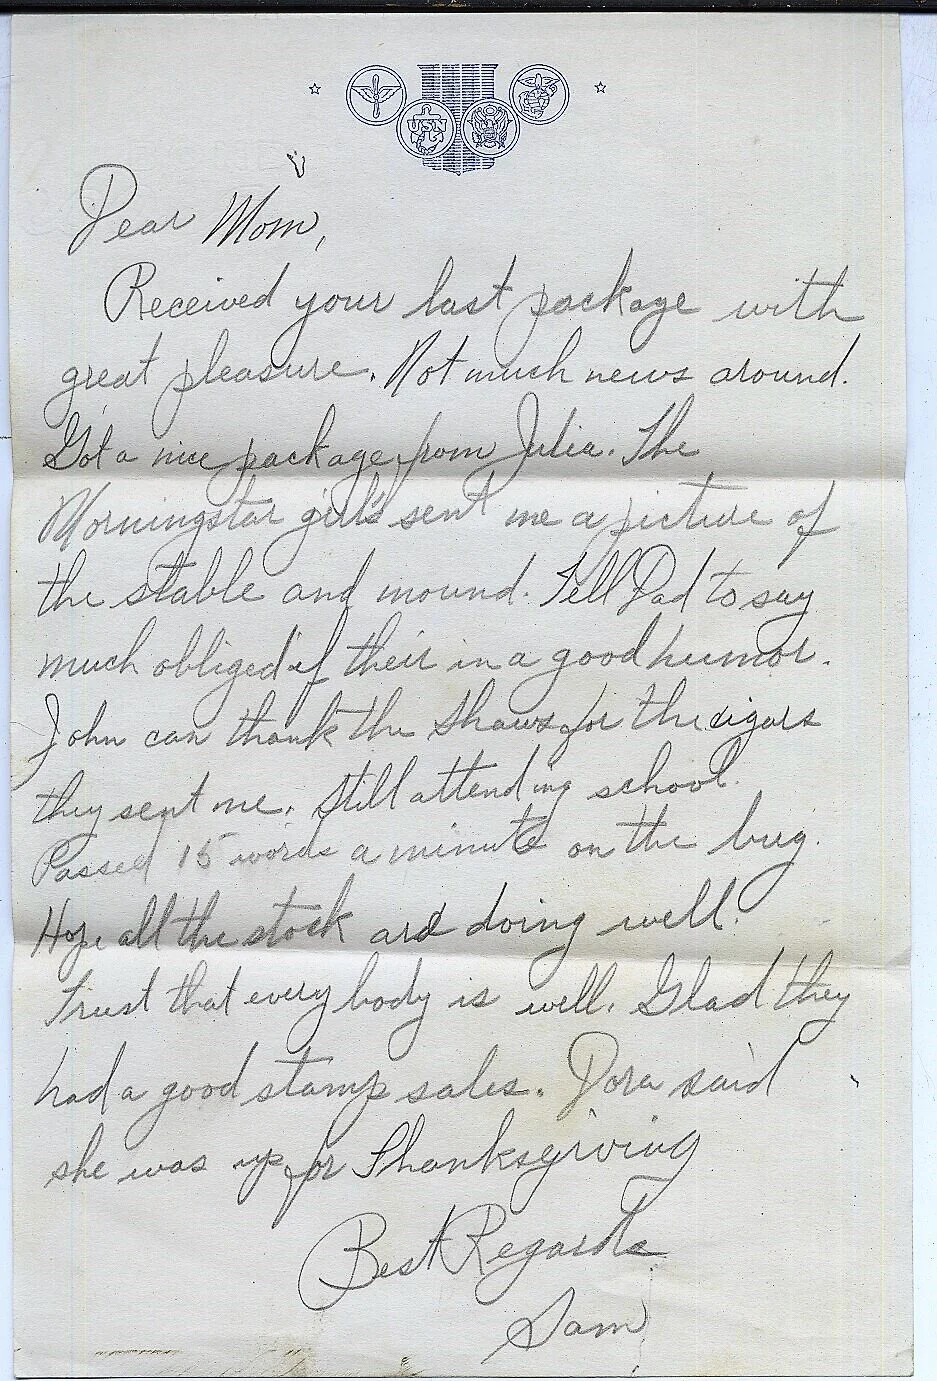 USN
Dear Mom,
Received your last package with
great pleasure. Not much news around.
Got a nice package from Julia. The
Morningstar girls sent me a picture of
the stable and mound. Tell Dad to say
much obliged if their in a good humor.
John can thank the Shaws for the cigars
they sent me. Still attending school.
Passed 15 words a minute on the bug.
Hope all the stock are doing well.
Trust that every body is well. Glad they
had a good stamp sales. Dora said
she was up for Thanksgiving
Best Regards
Sam